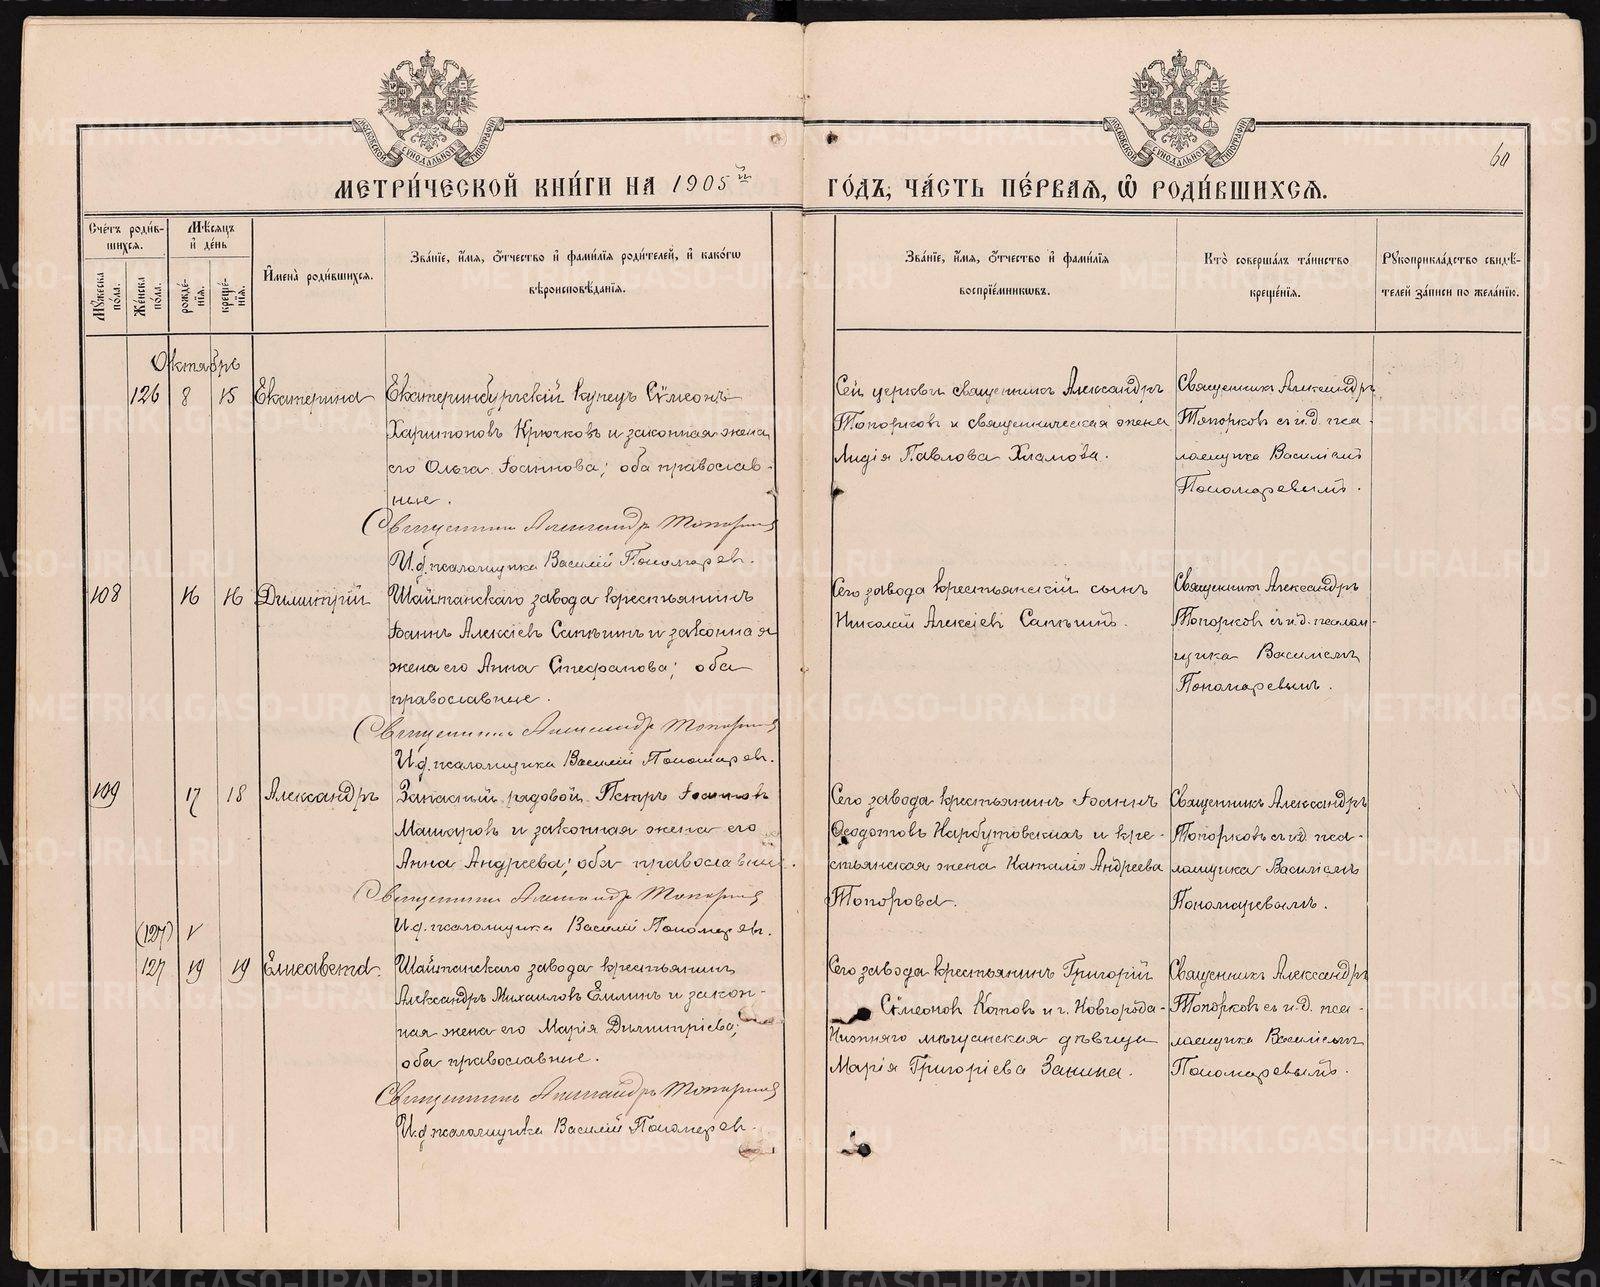 МОСКОВСКОЙ СУНОДАЛЬНОЙ ТИПОГРАФІИ
МОСКОВСКОЙ СУНОДАЛЬНОЙ ТИПОГРАФІИ
60
МЕТРИ́ЧЕСКОЙ КНИ́ГИ НА 1905й ГО́ДЪ, ЧА́СТЬ ПЕ́РВАѦ, Ѡ РОДИ́ВШИХСѦ.
Сче́тъ роди́вшихсѧ.
Мꙋ́жеска по́ла.
Же́нска по́ла.
Мѣ́сѧцъ и҆ де́нь
рожде́нїѧ.
креще́нїѧ.
И҆мена̀ роди́вшихсѧ.
Зва́нїе, и҆́мѧ, ѻ҆́тчество и҆ фами́лїѧ роди́телей, и҆ како́гѡ
вѣроисповѣ́данїѧ.
Зва́нїе, и҆́мѧ, ѻ҆́тчество и҆ фами́лїѧ
воспрїе́мникѡвъ.
Кто̀ соверша́лъ та́инство
креще́нїѧ.
Рꙋкоприкла́дство свидѣ́-
телей за́писи по жела́нїю.
Октябрь
126 8 15 Екатерина
Екатеринбургскій купецъ Сѵмеонъ
Харитоновъ Крючковъ и законная жена
его Ольга Іоаннова; оба православ-
ные.
Священникъ Александръ Топорков
И.д. псаломщика Василій Пономарев.
Сей церкви священникъ Александръ
Топорковъ и священническая жена
Лидія Павлова Хламова.
Священникъ Александръ
Топорковъ съ и.д. пса-
ломщика Василіемъ
Пономаревымъ.
108 16 16 Димитрій
Шайтанскаго завода крестьянинъ
Іоаннъ Алексіевъ Сапѣгинъ и законная
жена его Анна Стефанова; оба
православные.
Священникъ Александръ Топорков
И.д. псаломщика Василій Пономарев.
Сего завода крестьянскій сынъ
Николай Алексіевъ
Священникъ Александръ
Топорковъ съ и.д. псалом-
щика Василіемъ
Пономаревымъ.
109 17 18 Александръ
Запасный рядовой Петръ Іоанновъ
Машаровъ и законная жена его
Анна Андреева; оба православные.
Священникъ Александръ Топорков
И.д. псаломщика Василій Пономарев.
Сего завода крестьянинъ Іоаннъ
Ѳеодотовъ Нарбутовскихъ и кре-
стьянская жена Наталія Андреева
Топорова.
Священникъ Александръ
Топорковъ съ и.д. пса-
ломщика Василіемъ
Пономаревымъ.
(127) V
127 19 19 Елисавета.
Шайтанскаго завода крестьянинъ
Александръ Михаиловъ Ёлтинъ и закон-
ная жена его Марія Димитріева;
оба православные.
Священникъ Александръ Топорков
И.д. псаломщика Василій Пономарев.
Сего завода крестьянинъ Григорій
Сѵмеонов Котовъ и г. Новгорода-
Нижняго мѣщанская дѣвица
Марія Григоріева Занина.
Священникъ Александръ
Топорковъ съ и.д. пса-
ломщика Василіемъ
Пономаревымъ.
METRIKI.GASO-URAL.RU